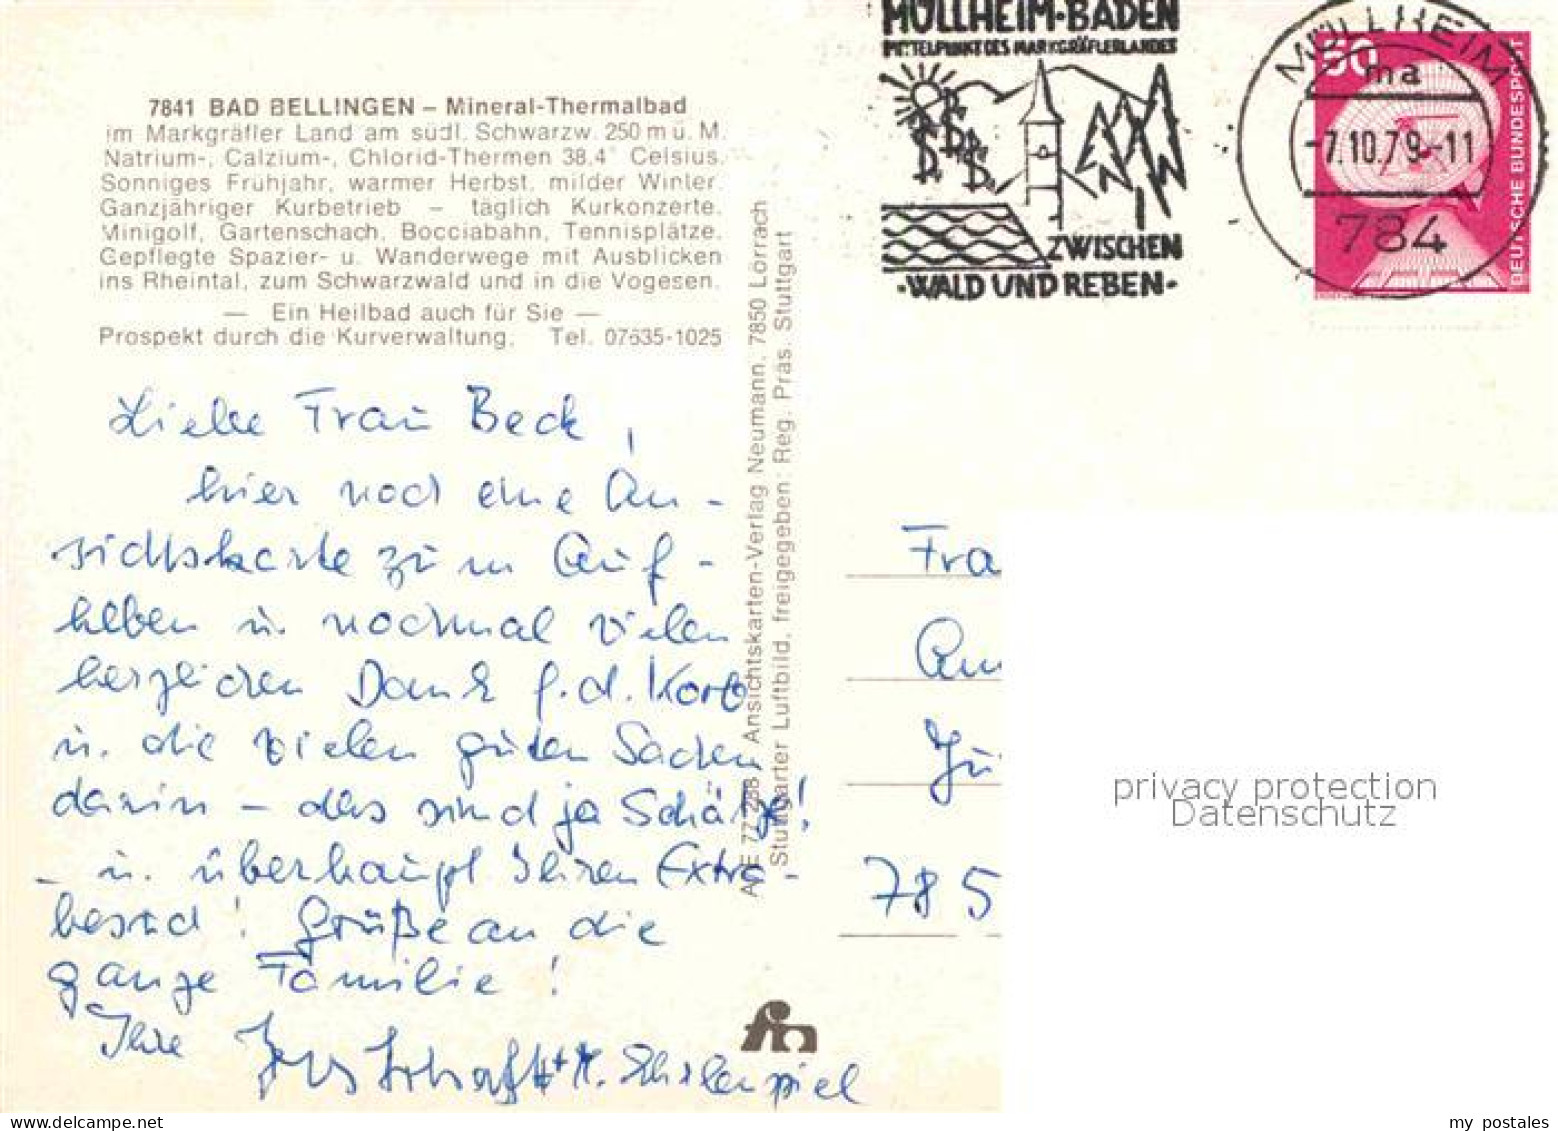 7841 BAD BELLINGEN – Mineral-Thermalbad
im Markgräfler Land am südl. Schwarzw. 250 m ü. M.
Natrium-, Calzium-, Chlorid-Thermen 38.4° Celsius.
Sonniges Frühjahr, warmer Herbst, milder Winter.
Ganzjähriger Kurbetrieb – täglich Kurkonzerte.
Minigolf, Gartenschach, Bocciabahn, Tennisplätze.
Gepflegte Spazier- u. Wanderwege mit Ausblicken
ins Rheintal, zum Schwarzwald und in die Vogesen.
— Ein Heilbad auch für Sie —
Prospekt durch die Kurverwaltung. Tel. 07635-1025
Liebe Frau Beck,
hier noch eine An-
sichtskarte zum Auf-
heben u. nochmal vielen
herzlichen Dank f. d. Korb
u. die vielen guten Sachen
darin – das sind ja Schätze!
– u. überhaupt Ihren Extra-
besuch! Grüße an die
ganze Familie!
Ihre
AE 77 288 Ansichtskarten-Verlag Neumann, 7850 Lörrach
Stuttgarter Luftbild, freigegeben: Reg. Präs. Stuttgart
fm
MÜLLHEIM-BADEN
MITTELPUNKT DES MARKGRÄFLERLANDES
ZWISCHEN
·WALD UND REBEN·
MÜLLHEIM
ma
-7.10.79-11
784
50
DEUTSCHE BUNDESPOST
Fra
Am
785
privacy protection
Datenschutz
my postales